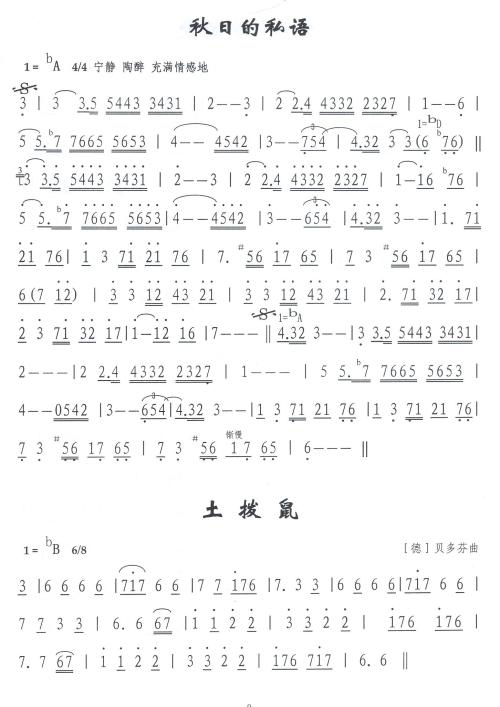 秋日的私语
1= bA 4/4 宁静 陶醉 充满情感地
3 | 3 3.5 5443 3431 | 2--3 | 2 2.4 4332 2327 | 1--6 |
5 5.b7 7665 5653 | 4-- 4542 | 3--754 | 4.32 3 3(6 1=bD b76) ‖
3 3.5 5443 3431 | 2--3 | 2 2.4 4332 2327 | 1-16 b76 |
5 5.b7 7665 5653 | 4--4542 | 3--654 | 4.32 3-- | 1. 71
21 76 | 1 3 71 21 76 | 7. #56 17 65 | 7 3 #56 17 65 |
6(7 12) | 3 3 12 43 21 | 3 3 12 43 21 | 2. 71 32 17 |
2 3 71 32 17 | 1-12 16 | 7--- ‖ 1=bA 4.32 3-- | 3 3.5 5443 3431 |
2--- | 2 2.4 4332 2327 | 1--- | 5 5.b7 7665 5653 |
4--0542 | 3--654 | 4.32 3-- | 1 3 71 21 76 | 1 3 71 21 76 |
7 3 #56 17 65 | 7 3 #56 渐慢 17 65 | 6--- ‖
土拨鼠
1= bB 6/8 [德] 贝多芬曲
3 | 6 6 6 6 | 717 6 6 | 7 7 176 | 7. 3 3 | 6 6 6 6 | 717 6 6 |
7 7 3 3 | 6. 6 67 | 1 1 2 2 | 3 3 2 2 | 176 176 | 176 176 |
7. 7 67 | 1 1 2 2 | 3 3 2 2 | 176 717 | 6. 6 ‖